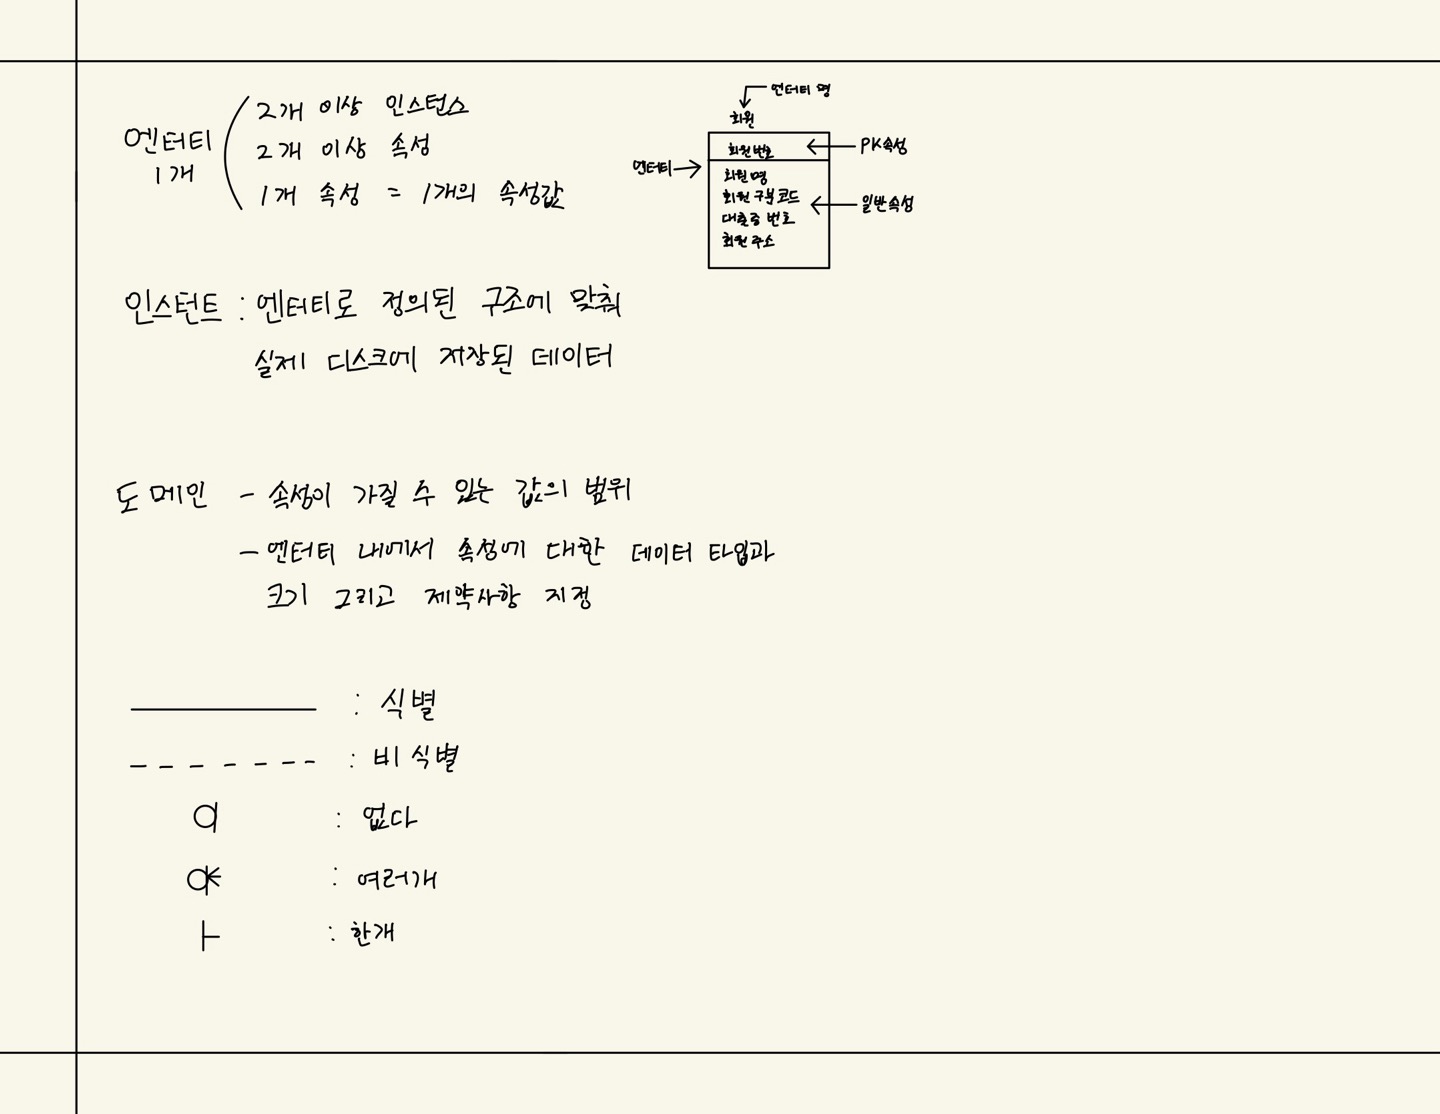 엔터티
1개
2개 이상 인스턴스
2개 이상 속성
1개 속성 = 1개의 속성값
엔터티 명
회원
엔터티
회원번호
PK속성
회원명
회원 구분 코드
대출증 번호
회원 주소
일반속성
인스턴트 : 엔터티로 정의된 구조에 맞춰
실제 디스크에 저장된 데이터
도메인 - 속성이 가질 수 있는 값의 범위
- 엔터티 내에서 속성에 대한 데이터 타입과
크기 그리고 제약사항 지정
: 식별
: 비식별
: 없다
: 여러개
: 한개